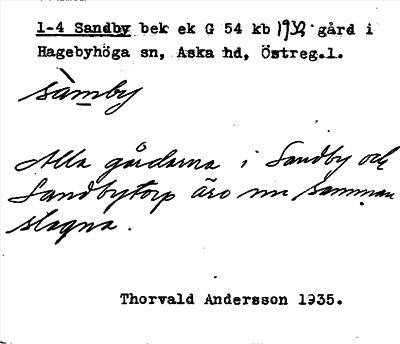 1-4 Sandby bek ek G 54 kb 1932 gård i
Hagebyhöga sn, Aska hd, Östreg.l.
sàmby
Alla gårdarna i Sandby och
Sandbytorp äro nu samman
slagna.
Thorvald Andersson 1935.